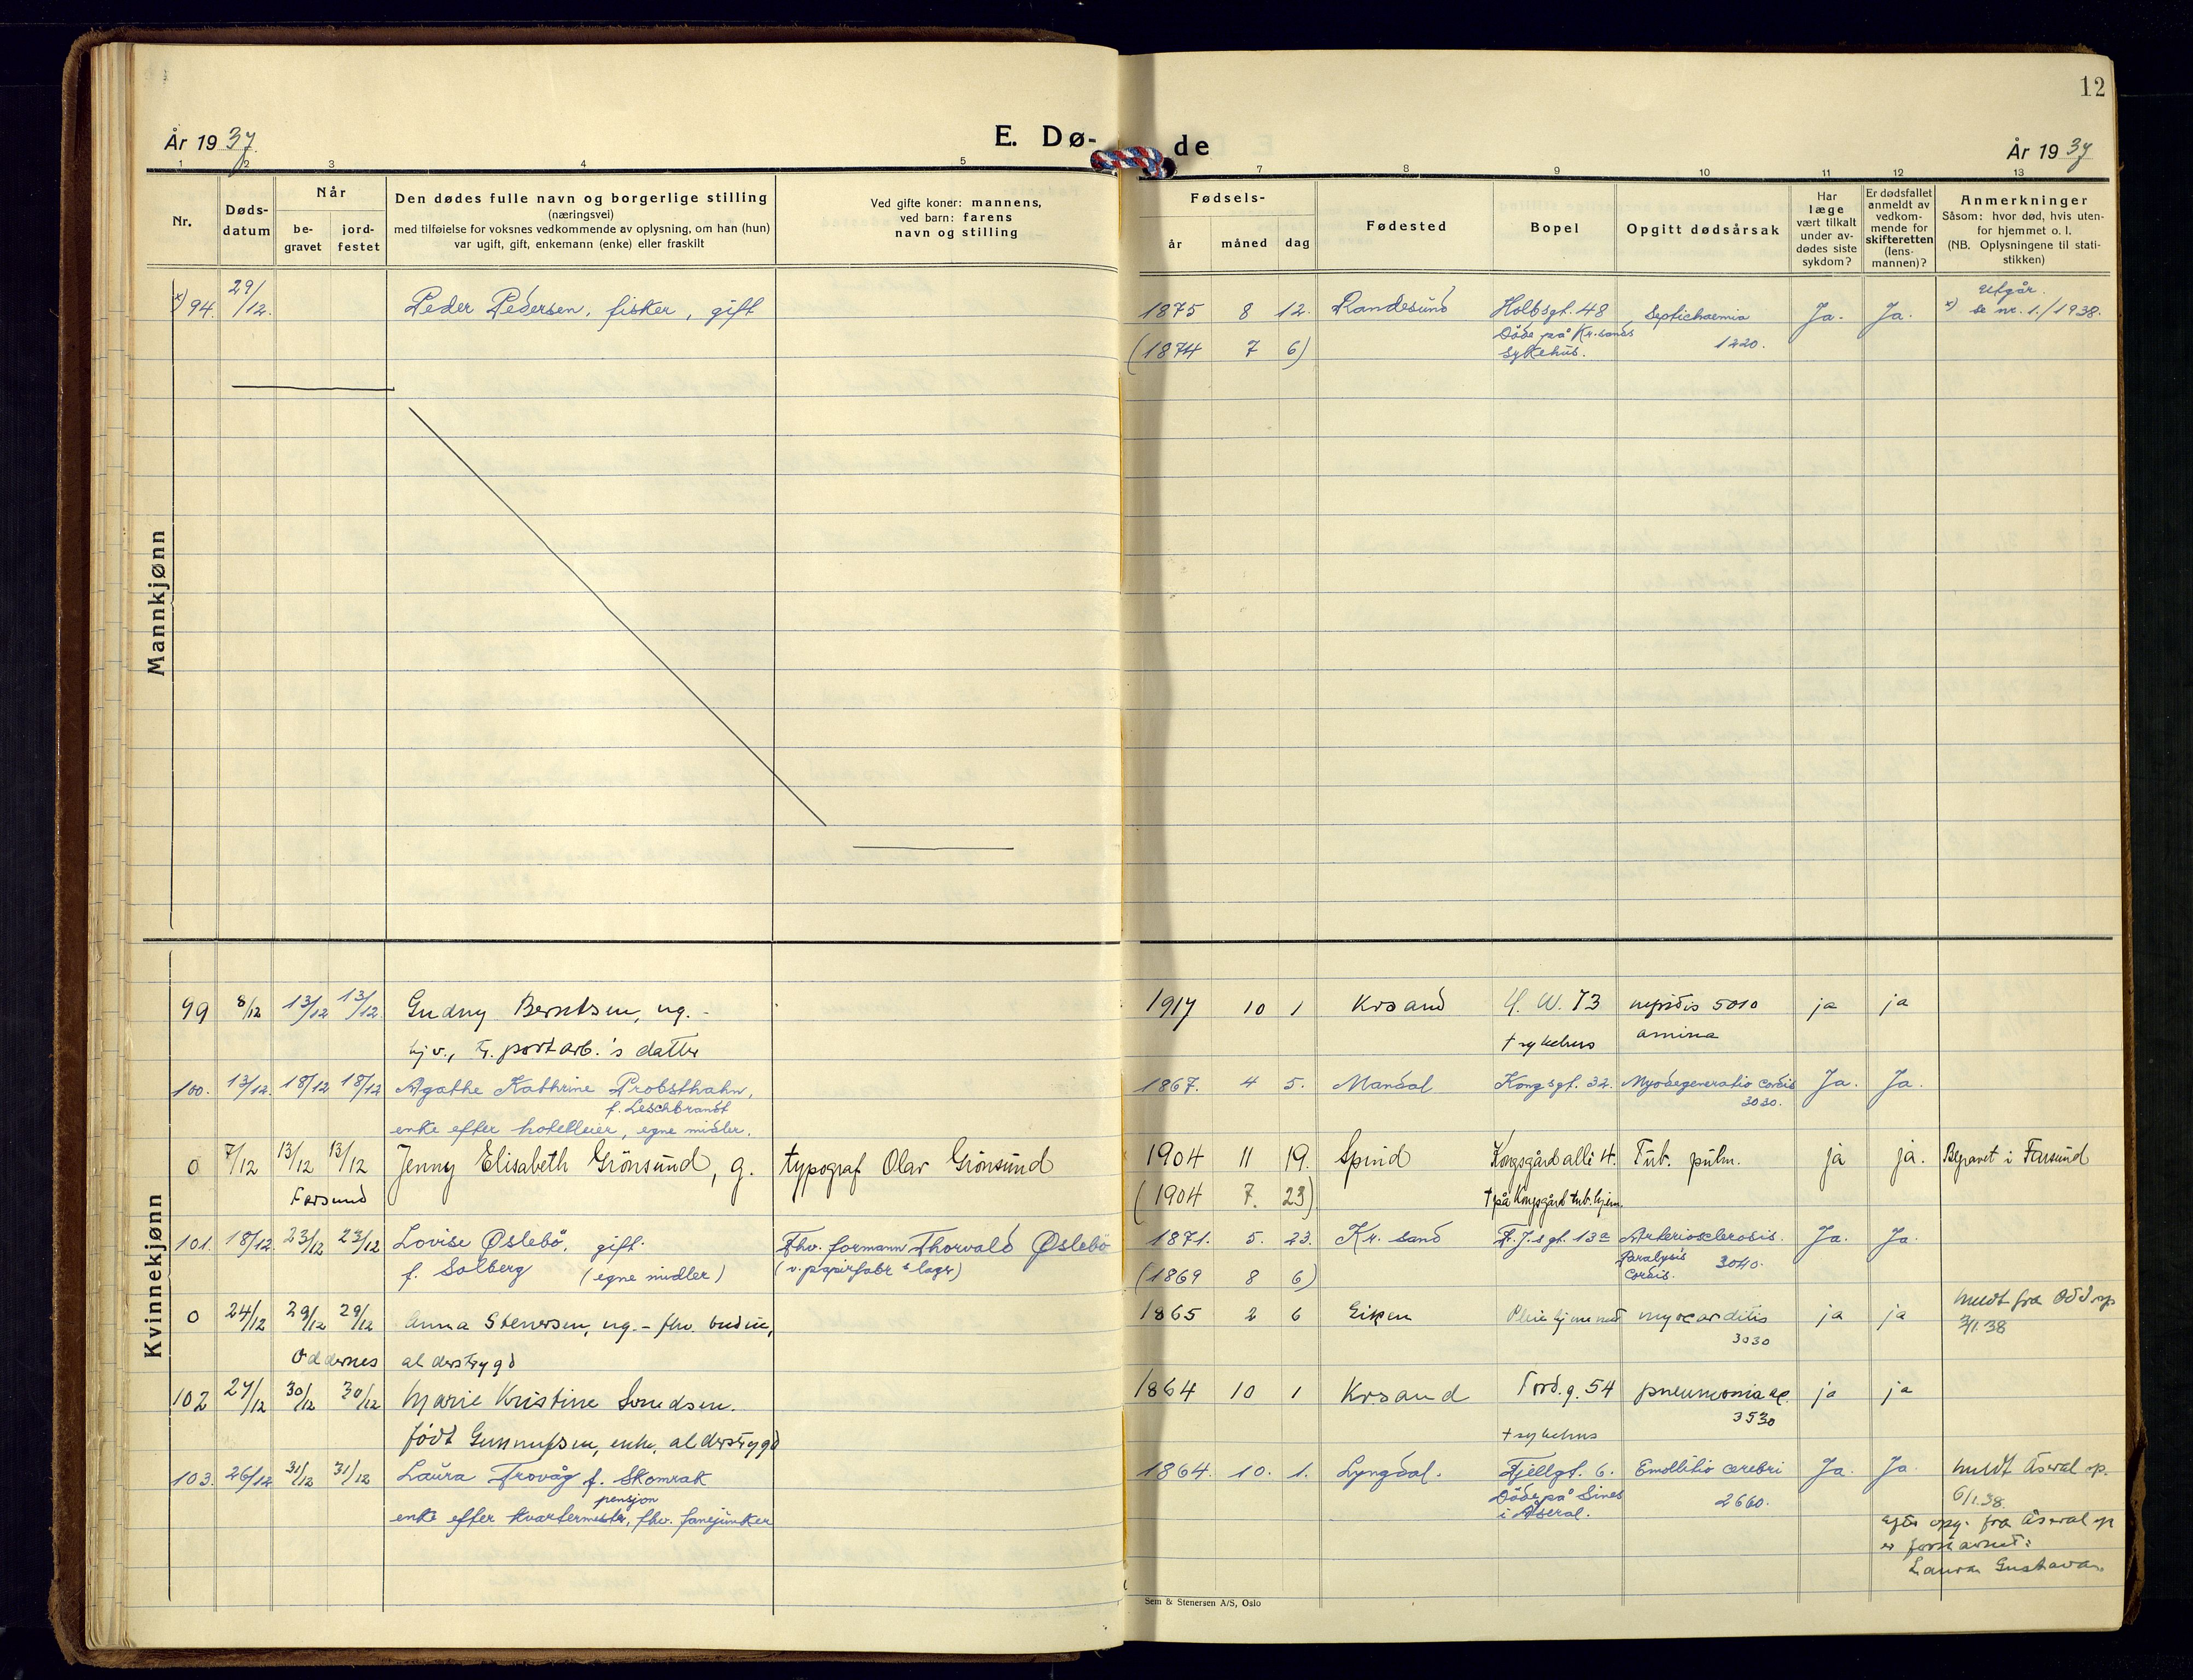 12
År 1937.
E. Dø-
de
År 1937
1 2 3 4 5 7 8 9 10 11 12 13
Nr.
Døds-
datum
Når
be-
gravet
jord-
festet
Den dødes fulle navn og borgerlige stilling
(næringsvei)
med tilføielse for voksnes vedkommende av oplysning, om han (hun)
var ugift, gift, enkemann (enke) eller fraskilt
Ved gifte koner: mannens,
ved barn: farens
navn og stilling
Fødsels-
år måned dag
Fødested
Bopel
Opgitt dødsårsak
Har
læge
vært tilkalt
under av-
dødes siste
sykdom?
Er dødsfallet
anmeldt av
vedkom-
mende for
skifteretten
(lens-
mannen)?
Anmerkninger
Såsom: hvor død, hvis uten-
for hjemmet o. l.
(NB. Oplysningene til stati-
stikken)
Mannkjønn
x) 94. 29/12. Peder Pedersen, fisker, gift 1875 8 12. Randesund Holbsgt. 48 Septichaemia Ja. Ja. Utgår.
x) se nr. 1./1938.
(1874 7 6) Døde på Kr.sands 1220.
Sykehus.
Kvinnekjønn
99 8/12 13/12 13/12 Gudny Berntsen, ug. - 1917 10 1 Krsand H. W. 73 5010 ja ja
portarb.'s datter † sykehus
100. 13/12. 18/12 18/12 Agathe Kathrine Probsthahn, 1867. 4 5. Mandal Kongsgt. 32. Myodegeneratio cordis Ja. Ja.
f. Leschbrandt 3030.
enke efter hotelleier, egne midler.
0 7/12 13/12 13/12 Jenny Elisabeth Grönsund, g. typograf Olav Grönsund 1904 11 19. Spind Kongsgård allé 4. Tub. pulm. ja ja. Begravet i Farsund
Farsund (1904 7. 23) † på Kongsgård tub.hjem.
101. 18/12. 23/12 23/12 Lovise Øslebö, gift. Fhv. formann Thorvald Øslebö 1871. 5. 23. Kr. sand F. J.s gt. 13a Arteriosclerosis. Ja. Ja.
f. Solberg (egne midler) (v. papirfabr s lager) (1869 8 6) Paralysis 3040.
cordis.
0 24/12 29/12 29/12 Anna Stenersen, ug. - fhv. budeie, 1865 2 6 Eiken Pleiehjemmet myocarditis ja ja meldt fra Odd. sp
3030 3/1.38
Oddernes alderstrygd
102 27/12 30/12 30/12 Marie Kristine 1864 10 1 Krsand Tord. g. 54 pneumonia ac. ja ja
3530
født Gunnufsen, enke, alderstrygd † sykehus
103. 26/12 31/12 31/12 Laura Trovåg f. Skomrak 1864. 10. 1. Lyngdal. Fjellgt. 6. Emollitio cerebri Ja. Ja. meldt Åseral sp.
pensjon Døde på Sines 2660. 6/1.38.
enke efter kvartermester, fhv. fanejunker i Åseral.
fra Åseral sp
er fornavnet:
Laura Gustava.
Sem & Stenersen A/S, Oslo